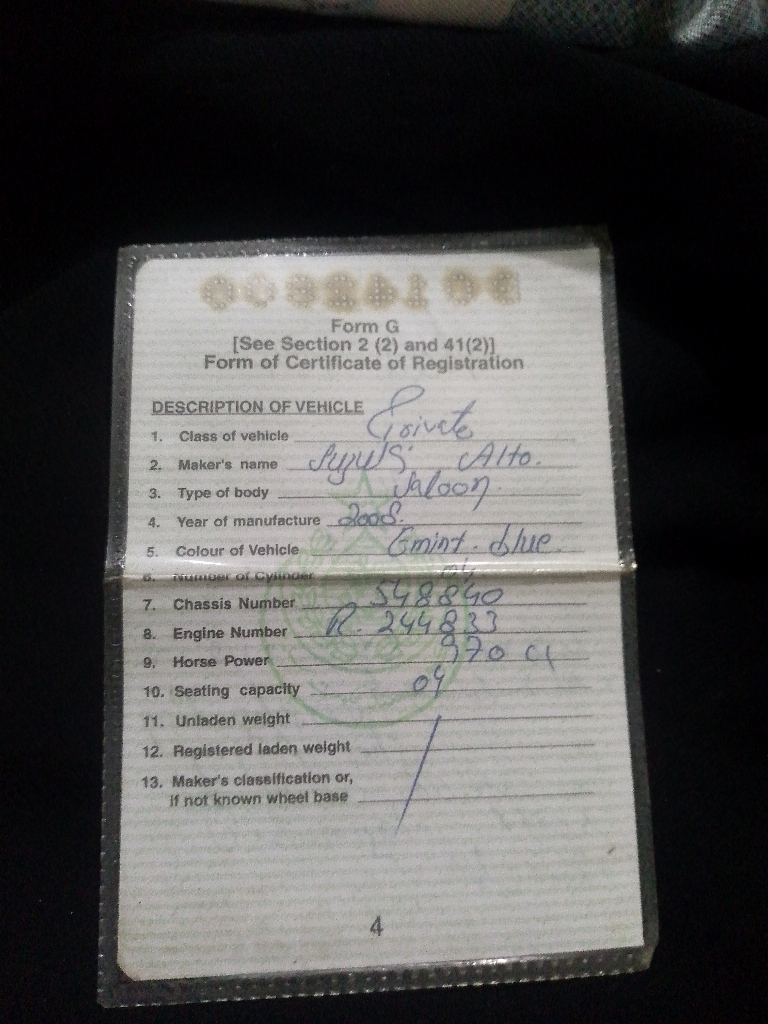 Form G
[See Section 2 (2) and 41(2)]
Form of Certificate of Registration
DESCRIPTION OF VEHICLE
1. Class of vehicle Private
2. Maker's name Suzuki Alto.
3. Type of body Saloon
4. Year of manufacture 2008.
5. Colour of Vehicle blue
6. Number of Cylinder 04
7. Chassis Number 548840
8. Engine Number R. 244833
9. Horse Power 970
10. Seating capacity 04
11. Unladen weight
12. Registered laden weight
13. Maker's classification or,
if not known wheel base
4